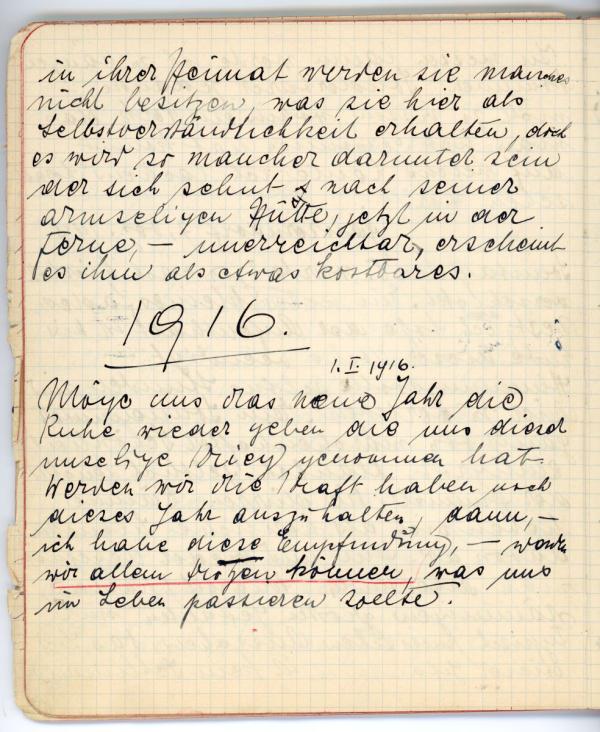 in ihrer Heimat werden sie manches
nicht besitzen, was sie hier als
Selbstverständlichkeit erhalten, doch
es wird so mancher darunter sein
der sich sehnt nach seiner
armseligen Hütte, jetzt in der
Ferne, — unerreichbar, erscheint
es ihm als etwas kostbares.
1916.
1. I. 1916.
Möge uns das neue Jahr die
Ruhe wieder geben die uns dieser
unselige Krieg genommen hat.
Werden wir die Kraft haben noch
dieses Jahr auszuhalten, dann, —
ich habe diese Empfindung, — werden
wir allem trotzen können, was uns
im Leben passieren sollte.